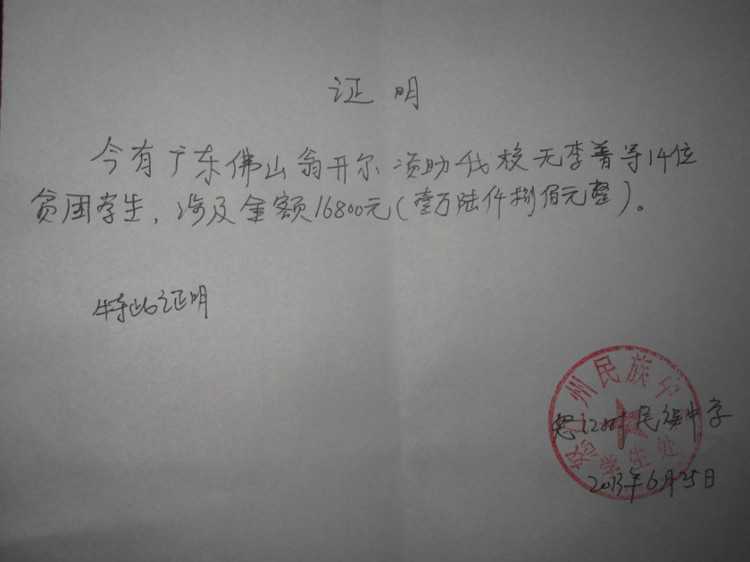 证 明
今有广东佛山翁开尔资助我校无李普等14位
贫困学生，涉及金额16800元（壹万陆仟捌佰元整）。
特此证明
怒江州民族中学
学生处
怒江州民族中学
2013年6月25日